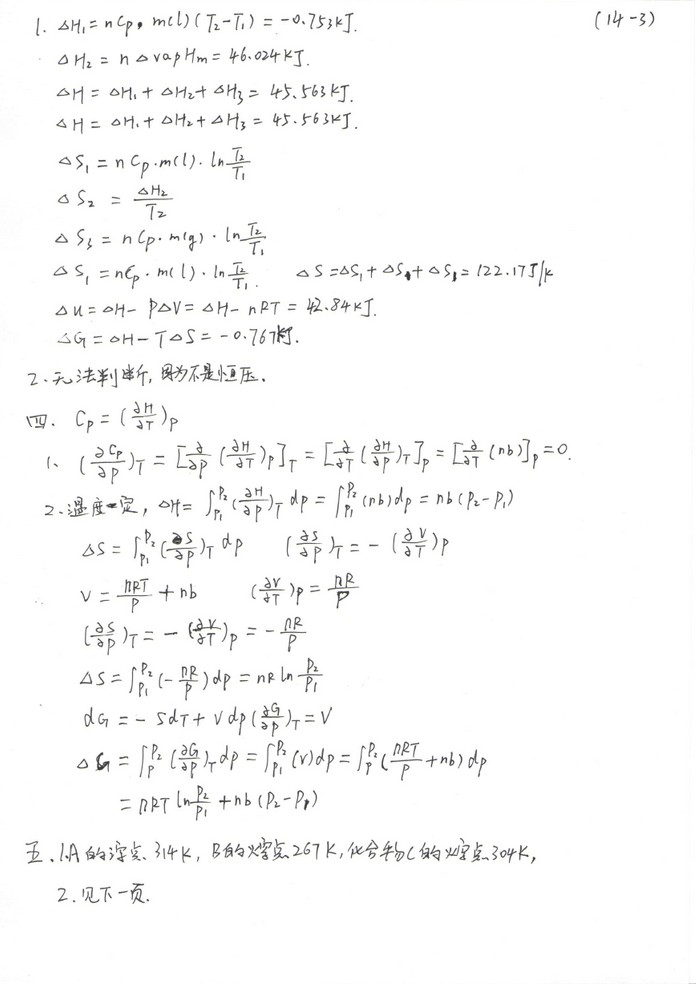 (14-3)
1. ΔH₁ = nCp,m(l)(T₂-T₁) = -0.753kJ.
ΔH₂ = nΔvapHm = 46.024kJ
ΔH = ΔH₁ + ΔH₂ + ΔH₃ = 45.563kJ.
ΔH = ΔH₁ + ΔH₂ + ΔH₃ = 45.563kJ.
ΔS₁ = nCp·m(l)·ln T₂/T₁
ΔS₂ = ΔH₂/T₂
ΔS₃ = nCp·m(g)·ln T₂/T₁
ΔS₁ = nCp·m(l)·ln T₂/T₁. ΔS = ΔS₁ + ΔS + ΔS = 122.17J/k
Δu = ΔH - PΔV = ΔH - nRT = 42.84kJ.
ΔG = ΔH - TΔS = -0.767kJ.
2. 无法判断,因为不是恒压.
四. Cp = (∂H/∂T)p
1、(∂Cp/∂p)T = [∂/∂p (∂H/∂T)p]T = [∂/∂T (∂H/∂p)T]p = [∂/∂T (nb)]p = 0.
2. 温度一定, ΔH = ∫p₁^p₂ (∂H/∂p)T dp = ∫p₁^p₂ (nb)dp = nb(p₂-p₁)
ΔS = ∫p₁^p₂ (∂S/∂p)T dp (∂S/∂p)T = -(∂V/∂T)p
V = nRT/p + nb (∂V/∂T)p = nR/p
(∂S/∂p)T = -(∂V/∂T)p = -nR/p
ΔS = ∫p₁^p₂ (-nR/p)dp = nR ln p₂/p₁
dG = -SdT + Vdp (∂G/∂p)T = V
ΔG = ∫p^p₂ (∂G/∂p)T dp = ∫p₁^p₂ (v)dp = ∫p^p₂ (nRT/p + nb)dp
= nRT ln p₂/p₁ + nb(p₂-p₁)
五. 1.A的 点 314K, B的熔点267K, 化合物C的熔点304K,
2. 见下一页.